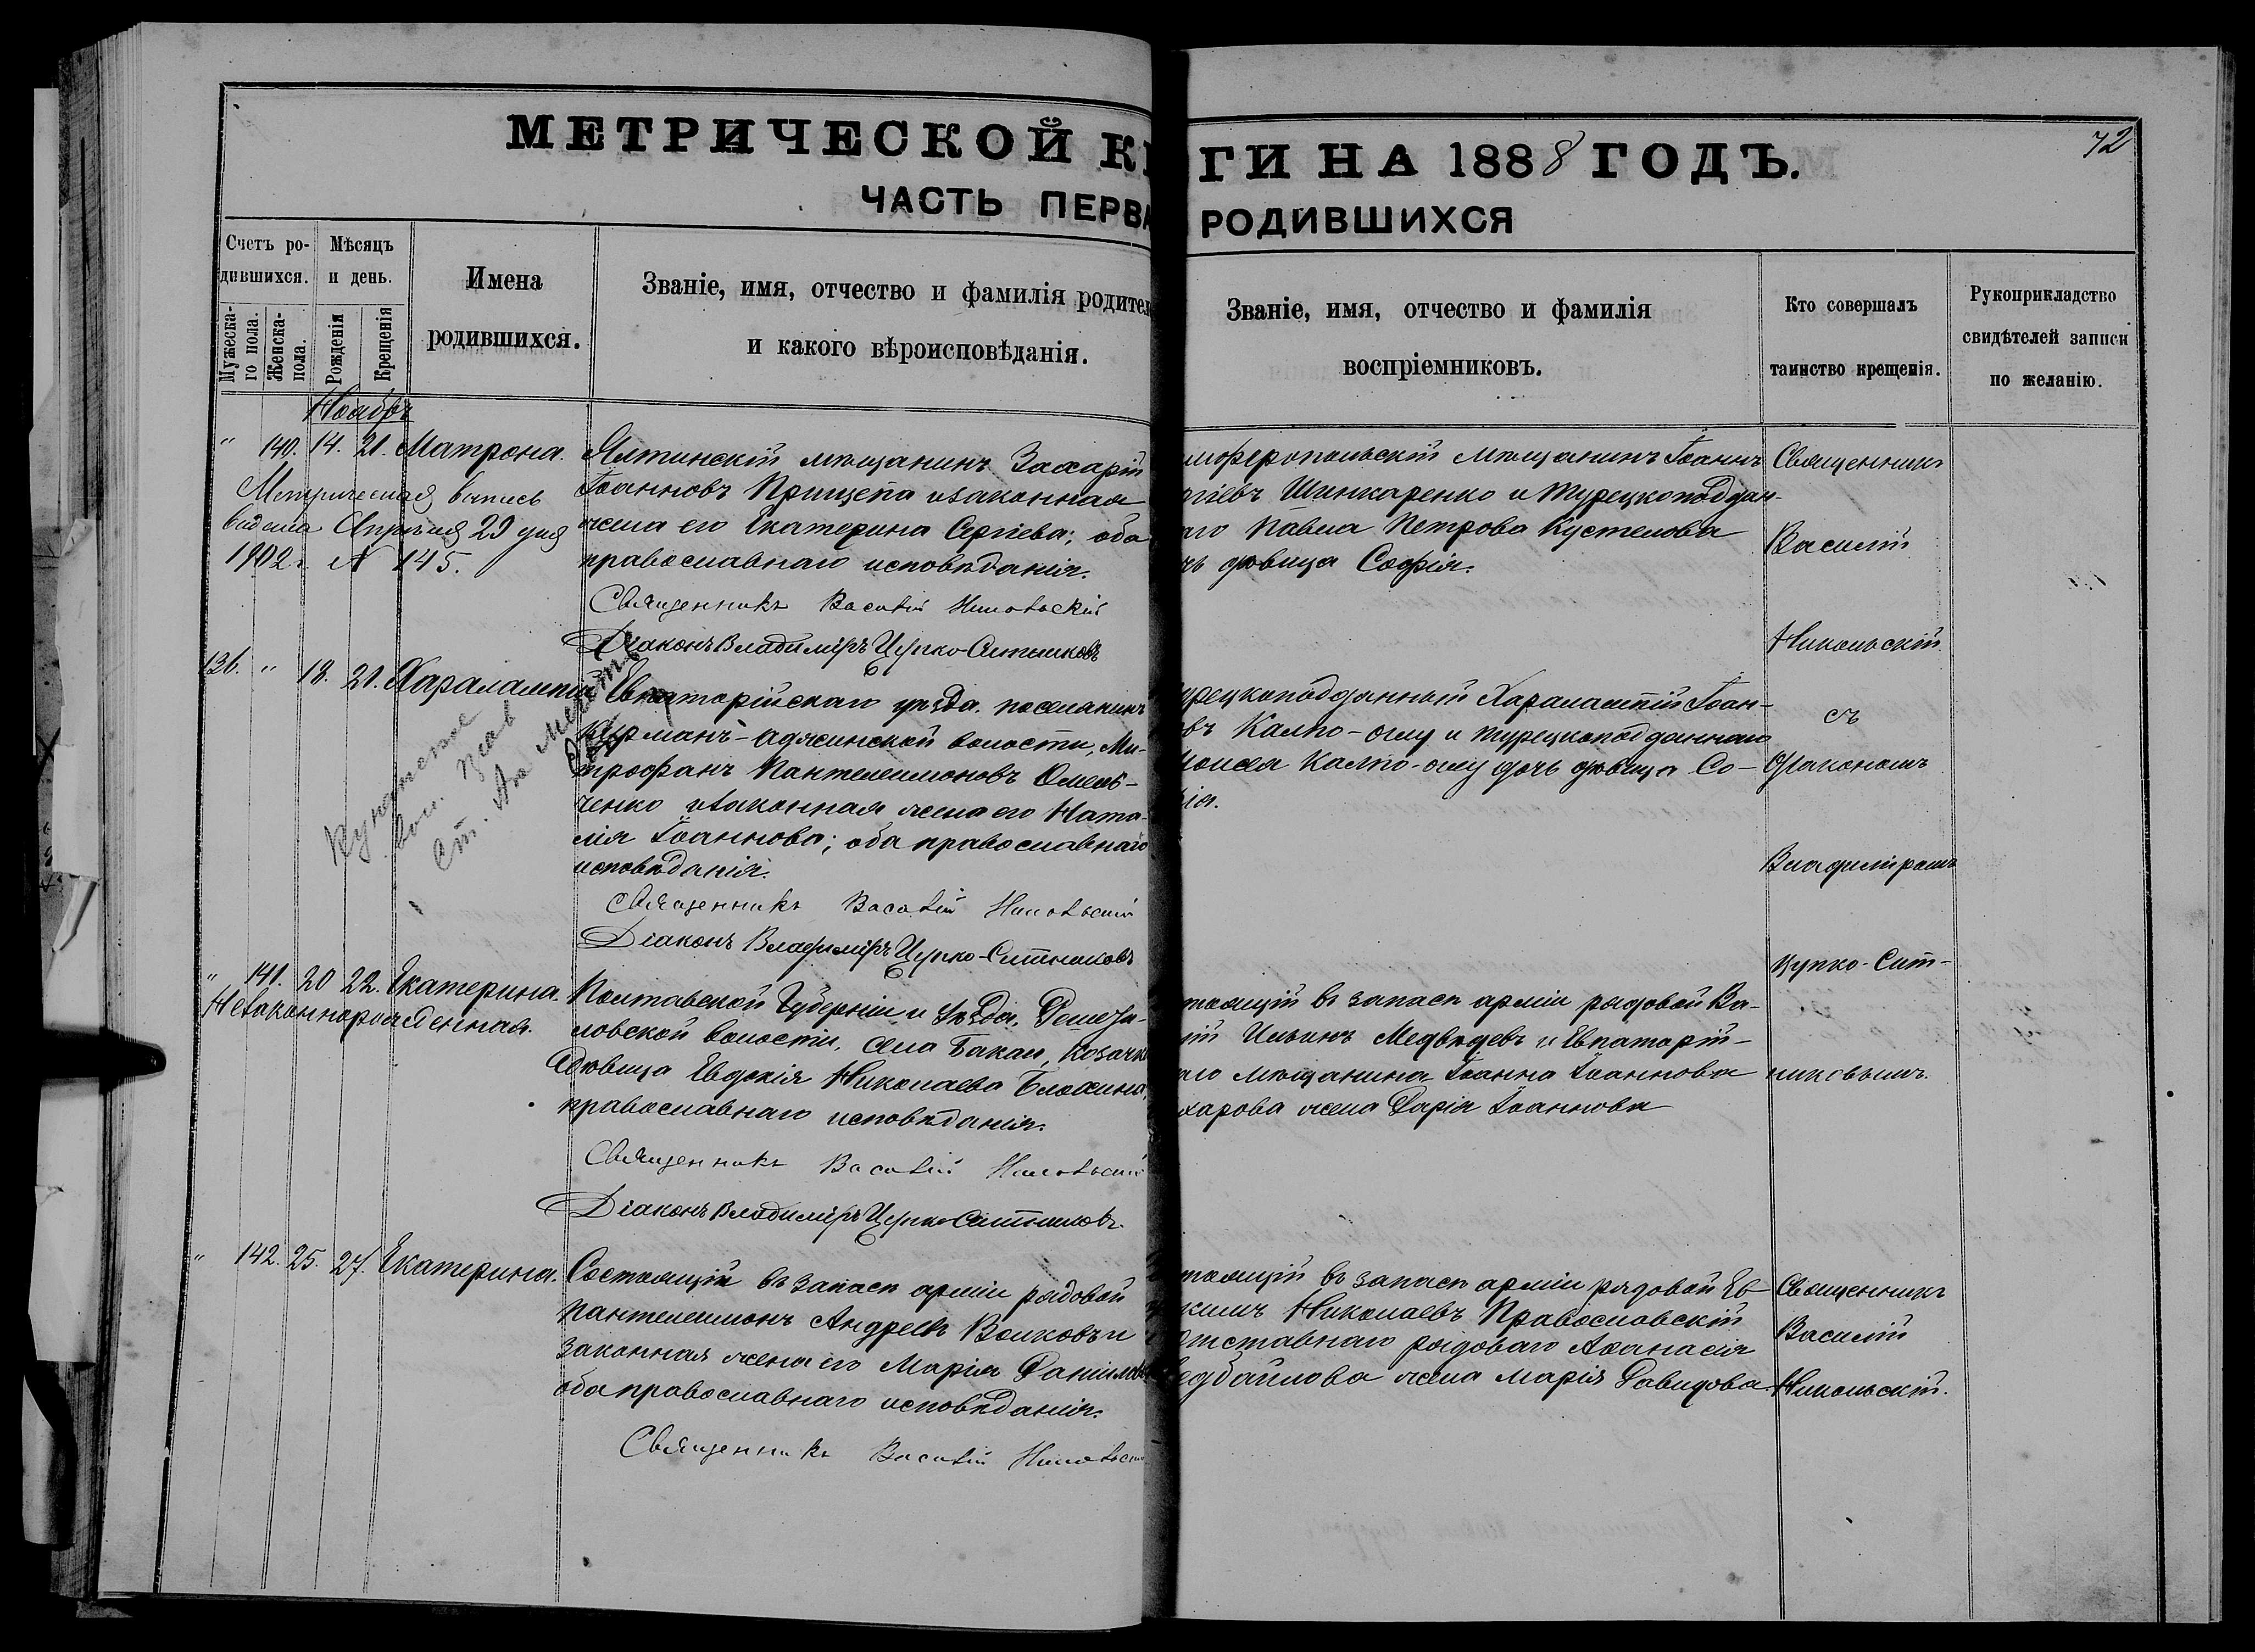 МЕТРИЧЕСКОЙ К
ГИ НА 1888 ГОДЪ.
72
ЧАСТЬ ПЕРВА
РОДИВШИХСЯ
Счетъ ро-
дившихся.
Мужеска-
го пола.
Женска-
пола.
Мѣсяцъ
и день.
Рожденія
Крещенія
Имена
родившихся.
Званіе, имя, отчество и фамилія родител
и какого вѣроисповѣданія.
Званіе, имя, отчество и фамилія
воспріемниковъ.
Кто совершалъ
таинство крещенія.
Рукоприкладство
свидѣтелей записи
по желанію.
Ноябрь
" 140. 14. 21. Матрона.
Метрическая выпись
видана Апрѣля 29 дня
1902 г. N 145.
Ялтинскій мѣщанинъ Захарій
Іоанновъ Прищепа и законная
жена его Екатерина Сергіева; оба
православнаго исповѣданія.
Священникъ Василій Никольскій
Діаконъ Владиміръ Цупко-Ситниковъ
имферопольскій мѣщанинъ Іоаннъ
ргіевъ Шинкаренко и турецкоподдан-
аго Павла Петрова Кустелова
чь дѣвица Софія.
Священникъ
Василій
Никольскій
съ
Діакономъ
Владиміромъ
Цупко-Сит-
никовымъ.
136. " 18. 21. Харалампій
Евпаторійскаго уѣзда, поселянинъ
Курманъ-Аджинской волости, Ми-
трофанъ Пантелеимоновъ Омель-
ченко и законная жена его Ната-
лія Іоаннова; оба православнаго
исповѣданія.
Священникъ Василій Никольскій
Діаконъ Владиміръ Цупко-Ситниковъ
урецкоподданный Харалампій Іоан-
овъ Калпо-оглу и турецкоподданнаго
Моисея Калпо-оглу дочь дѣвица Со-
фія.
" 141. 20 22. Екатерина.
Незаконнорожденная.
Полтавской Губерніи и уѣзда,
ловской волости, села Бакаи, козачка
дѣвица Евдокія Николаева Блохина,
православнаго исповѣданія.
Священникъ Василій Никольскій
Діаконъ Владиміръ Цупко-Ситниковъ.
тоящій въ запасѣ арміи рядовой Ва-
лій Ильинъ Медвѣдевъ и Евпаторій-
аго мѣщанина Іоанна Іоаннова
харова жена Дарія Іоаннова
" 142. 25. 27. Екатерина.
Состоящій въ запасѣ арміи рядовой
Пантелеимонъ Андреевъ Волковъ и
законная жена его Марія Даніилова
оба православнаго исповѣданія.
Священникъ Василій Никольскій
тоящій въ запасѣ арміи рядовой Ев-
кимъ Николаевъ Православскій
Отставнаго рядоваго Аѳанасія
едбайлова жена Марія Давидова.
Священникъ
Василій
Никольскій.